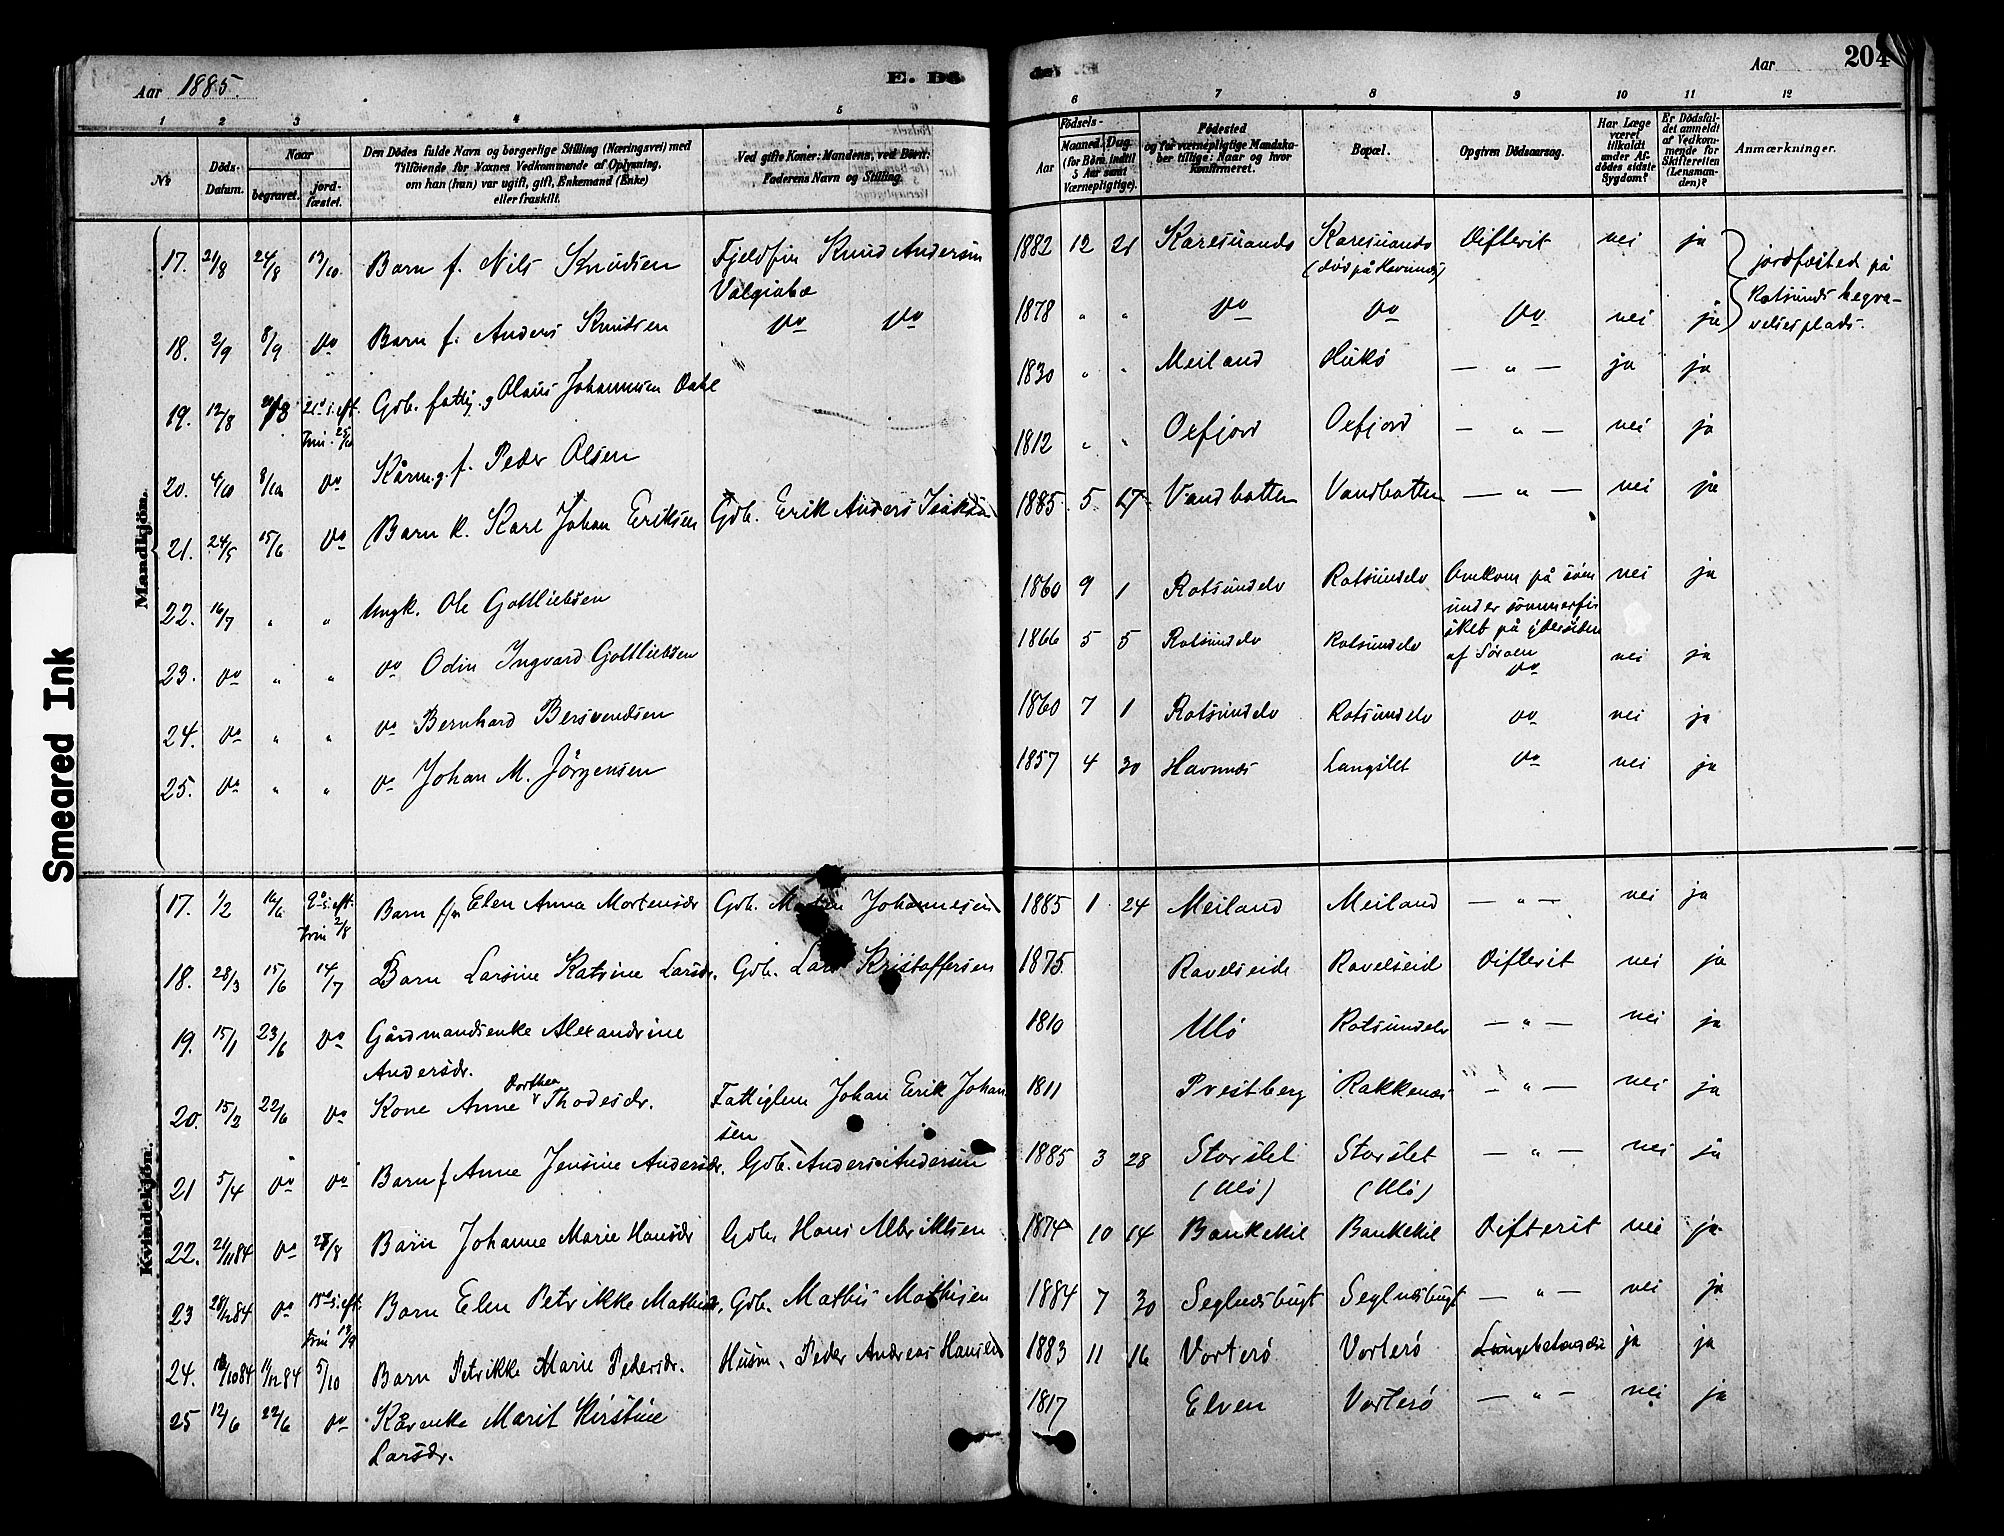 Aar 1885.
E. Dö
204
Aar
1 2 3 4 5
6 7 8 9 10 11 12
№
Döds-Datum.
Naar
begravet.
jord-fæstet.
Den Dödes fulde Navn og borgerlige Stilling (Næringsvei) med
Tilföiende for Voxnes Vedkommende af Oplysning,
om han (hun) var ugift, gift, Enkemand (Enke)
eller fraskilt.
Ved gifte Koner: Mandens, ved Börn:
Faderens Navn og Stilling.
Födsels-
Aar
Maaned. Dag.
(for Börn indtil
5 Aar samt
Værnepligtige).
Födested
og for værnepligtige Mandska-
ber tillige: Naar og hvor
konfirmeret.
Bopæl.
Opgiven Dödsaarsag.
Har Læge
været
tilkaldt
under Af-
dödes sidste
Sygdom?
Er Dödsfal-
det anmeldt
af Vedkom-
mende for
Skifteretten
(Lensman-
den)?
Anmærkninger.
Mandkjön.
17. 21/8 24/8 13/10 Barn f. Nils Knudsen Fjeldfin Knud Andersen 1882 12 21 Karesuando Karesuando Difterit nei ja
Valgiabæ (död på Havnnæs)
jordfæsted på
Rotsunds begra-
velsesplads.
18. 2/9 8/9 do Barn f. Anders Knudsen do do 1878 " " do do do nei ja
19. 12/8 21d s. eft. Gdb. fattig Olaus Johannesen Dahl 1830 " " Meiland Hukö — " — ja ja
trin. 25/10
20. 4/10 8/10 do Kårm. f. Peder Olsen 1812 " " Oxfjord Oxfjord — " — nei ja
21. 24/5 15/6 do Barn k. Karl Johan Eriksen Gdb. Erik Anders Isaksen 1885 5 17 Vandbotten Vandbotten — " — nei ja
22. 16/7 " " Ungk. Ole Gottliebsen 1860 9 1 Rotsundelv Rotsundelv Omkom på söen nei ja
under sommerfi
sket på ydersiden
af Söröen
23. do " " do Odin Ingvard Gottliebsen 1866 5 5 Rotsundelv Rotsundelv do nei ja
24. do " " do Bernhard Bersvendsen 1860 7 1 Rotsundelv Rotsundelv do nei ja
25. do " " do Johan M. Jörgensen 1857 4 30 Havnnæs Langslet do nei ja
Kvindekjön.
17. 1/2 14/6 9d s. eft. Barn Elen Anna Mortensdr Gdb. Morten Johannesen 1885 1 24 Meiland Meiland — " — nei ja
trin 2/8
18. 28/3 15/6 14/7 Barn Larsine Katrine Larsdr. Gdb. Lars Kristoffersen 1875 Ravelseide Ravelseid Difterit nei ja
19. 15/1 23/6 do Gårdmandsenke Alexandrine 1810 Ulö Rotsundelv — " — nei ja
Andersdr.
20. 15/2 22/6 do Kone Anne Dorthea Thodesdr. Fattiglem Johan Erik Johan 1811 Prestberg Rakkenæs — " — nei ja
sen
21 5/4 do do Barn f Anne Jensine Andersdr. Gdb. Anders Andersen 1885 3 28 Storslet Storslet — " — nei ja
(Ulö) (Ulö)
22. 21/11 84 do 28/8 Barn Johanne Marie Hansdr Gdb. Hans Albriktsen 1874 10 14 Bankekil Bankekil Difterit nei ja
23 28/12 84 do 15d s. eft. Barn Elen Petrikke Mathisdr, Gdb. Mathis Mathisen 1884 7 30 Seglnæsbugt Seglnæsbugt — " — nei ja
trin 13/9
24. 10 84 11/12 84 5/10 Barn Petrikke Marie Pedersdr. Husm. Peder Andreas Hansen 1883 11 16 Vorterö Vorterö Lungebetændelse ja ja
25 12/6 22/6 do Kårenke Marit Kirstine 1817 Elven Vorterö — " — nei ja
Larsdr.
Smeared Ink